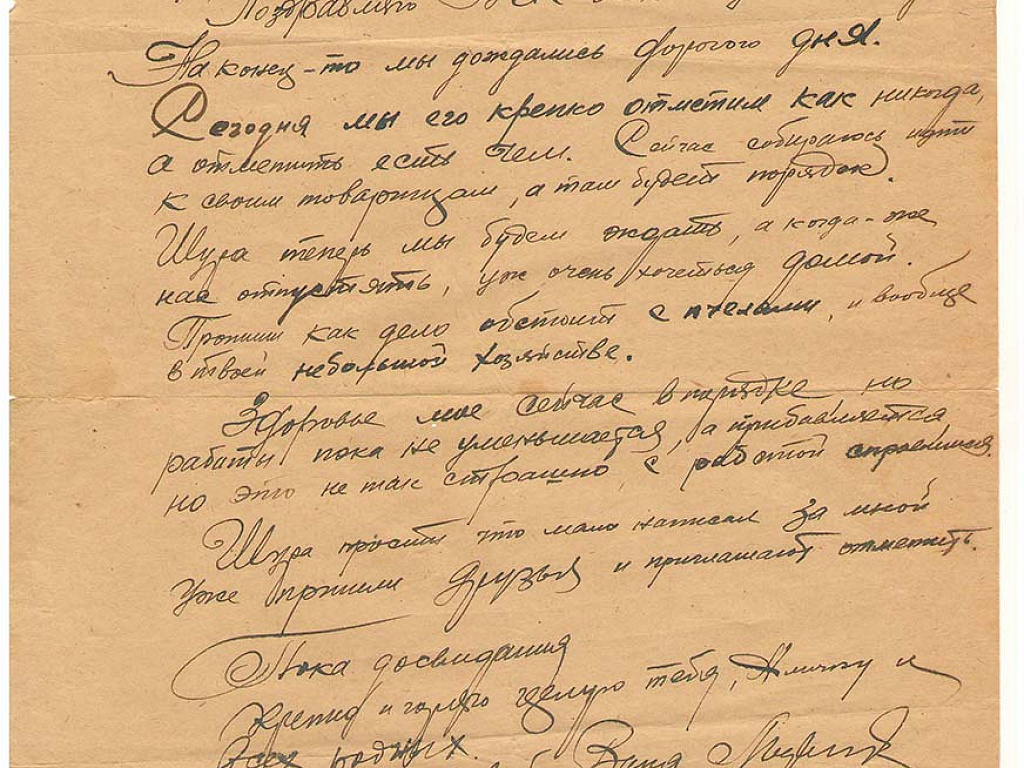 Поздравляю Вас
Наконец-то мы дождались дорогого дня.
Сегодня мы его крепко отметим как никогда,
а отметить есть чем. Сейчас собираюсь идти
к своим товарищам, а там будет порядок.
Шура теперь мы будем ждать, а когда-же
нас отпустять, уж очень хочеться домой.
Пропиши как дело обстоит с пчелами, и вообще
в твоей небольшой хозяйстве.
Здоровье мое сейчас в порядке но
работы пока не уменьшается, а прибавляется
но это не так страшно, с работой справимся.
Шура прости что мало написал за мной
уже пришли друзья и приглашают отметить.
Пока досвидания
Крепко и горячо целую тебя, и
всех родных.